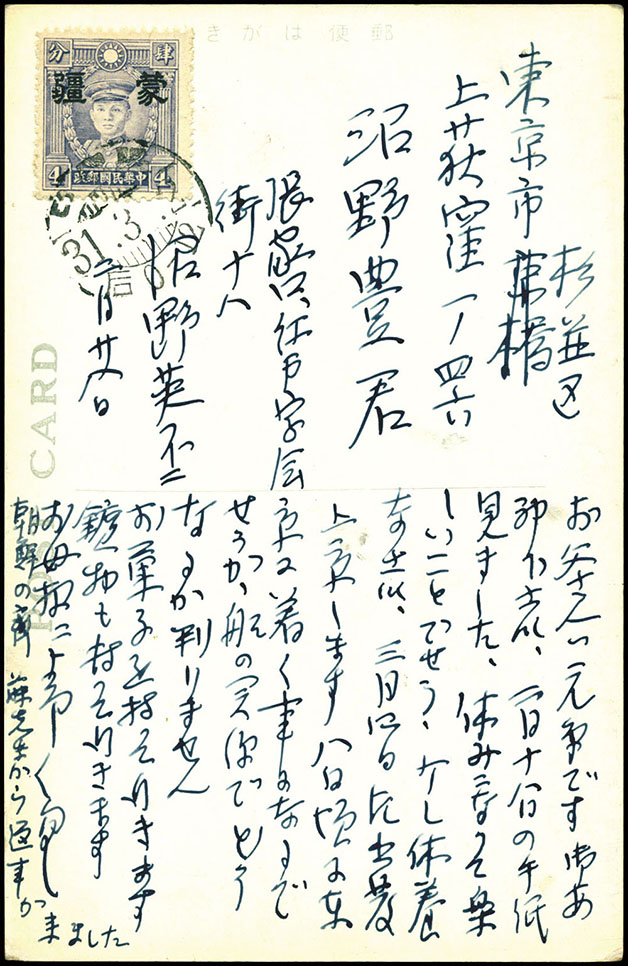 郵便はがき
肆分
蒙疆
4
中華民國郵政
4
31.3
東京市杉並区
上荻窪一ノ四六
沼野豊君
張家口
街十八
沼野英不二
二月廿八日
お父さんは元気です
二月十八日の手紙
見ました、休みになって楽
しいことでせう、少し休養
なさい、三月四日に出発
上京します 八日頃に東
京に着く事になるで
せうが、船の関係でどう
なるか判りません
お菓子を持って行きます
鏡物も持って行きます
お母様によろしく
朝鮮の斉藤先生から返事が
来ました
CARD